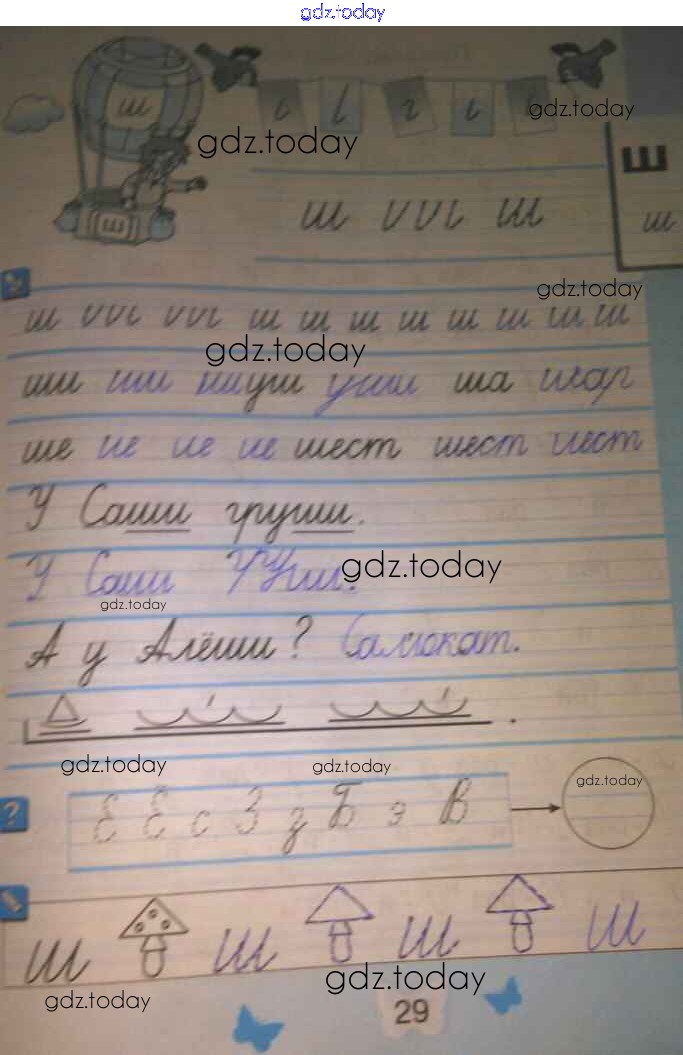 gdz.today
ш
ı l г ı gdz.today
gdz.today
Ш
ш ш
ш
ш
gdz.today
ш ш ш ш ш ш ш ш ш
gdz.today
ши ши уши уши ша шар
ше шест шест шест
У Саши груши.
gdz.today
У Саши груши.
gdz.today
А у Алёши? Самокат.
gdz.today gdz.today
gdz.today
? Є Є с З з Б э В
ш ш ш ш
gdz.today
gdz.today
29